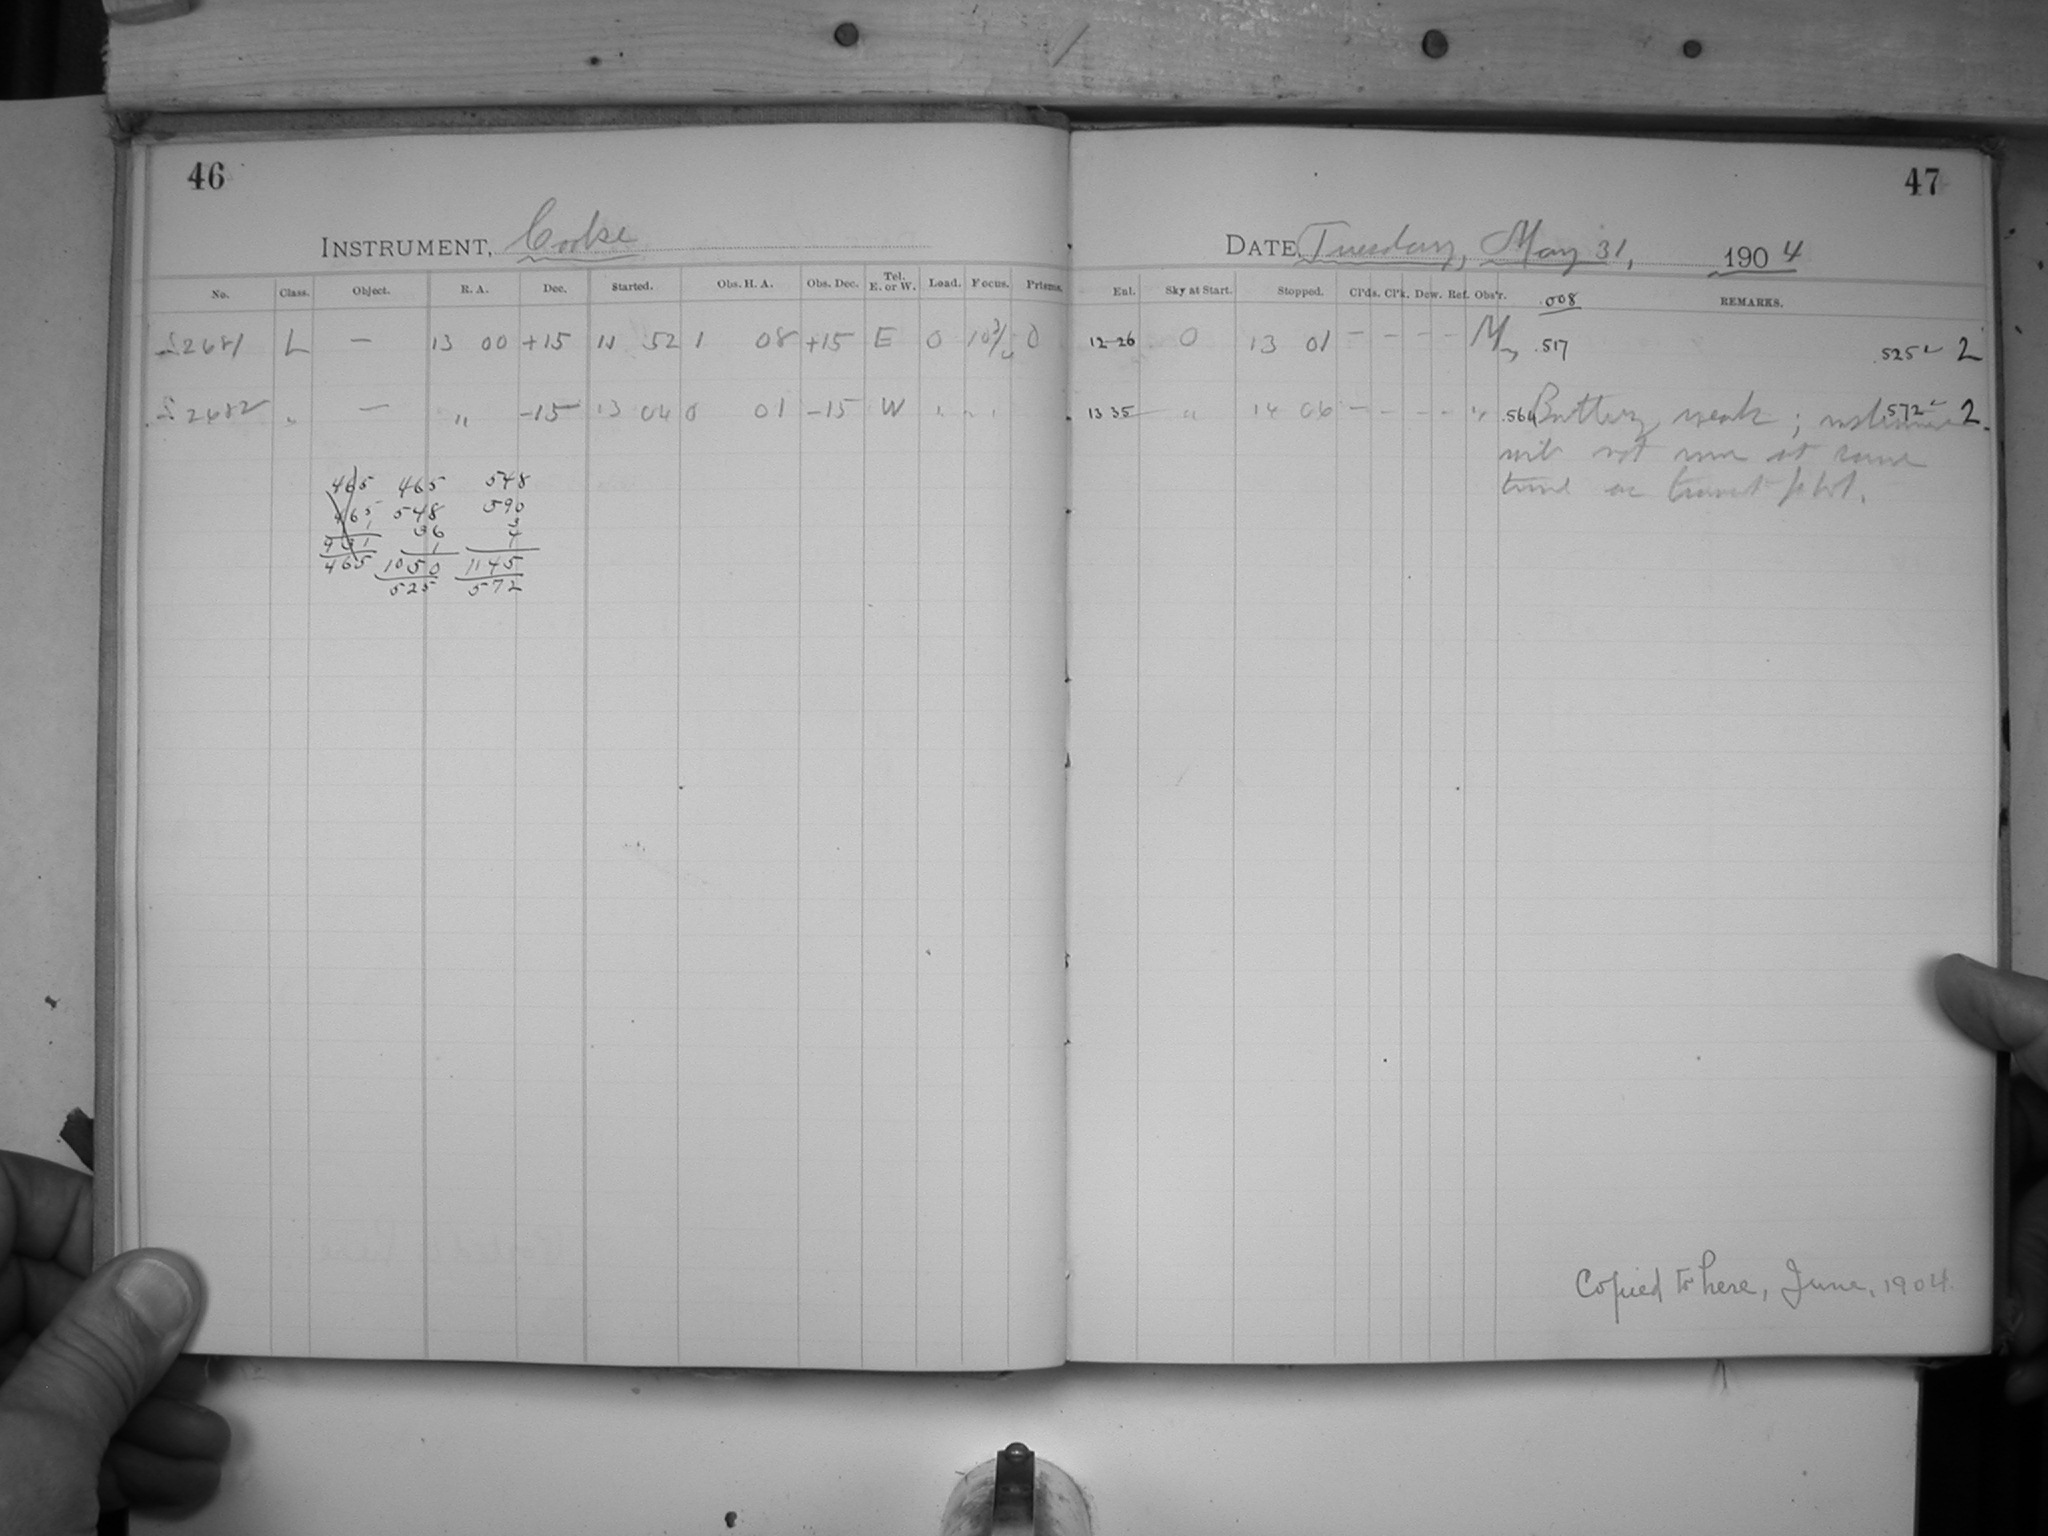 46
INSTRUMENT, Cooke
No. Class. Object. R. A. Dec. Started. Obs. H. A. Obs. Dec. Tel. E. or W. Load. Focus. Prisms.
2681 L — 13 00 +15 11 52 1 08 +15 E 0 10 3/4 0
2682 " — " -15 13 04 0 01 -15 W " " "
465 465 548
465 548 590
1 36
931 1 1
465 1050 1145
525 572
47
DATE, Tuesday, May 31, 1904
Enl. Sky at Start. Stopped. Cl'ds. Cl'k. Dew. Ref. Obs'r. .008 REMARKS.
12 26 0 13 01 — — — — M .517 .525 2
13 35 " 14 06 — — — — " .564 Battery weak; instrument .572 2
will not run at same
time as transit phot.
Copied to here, June, 1904.